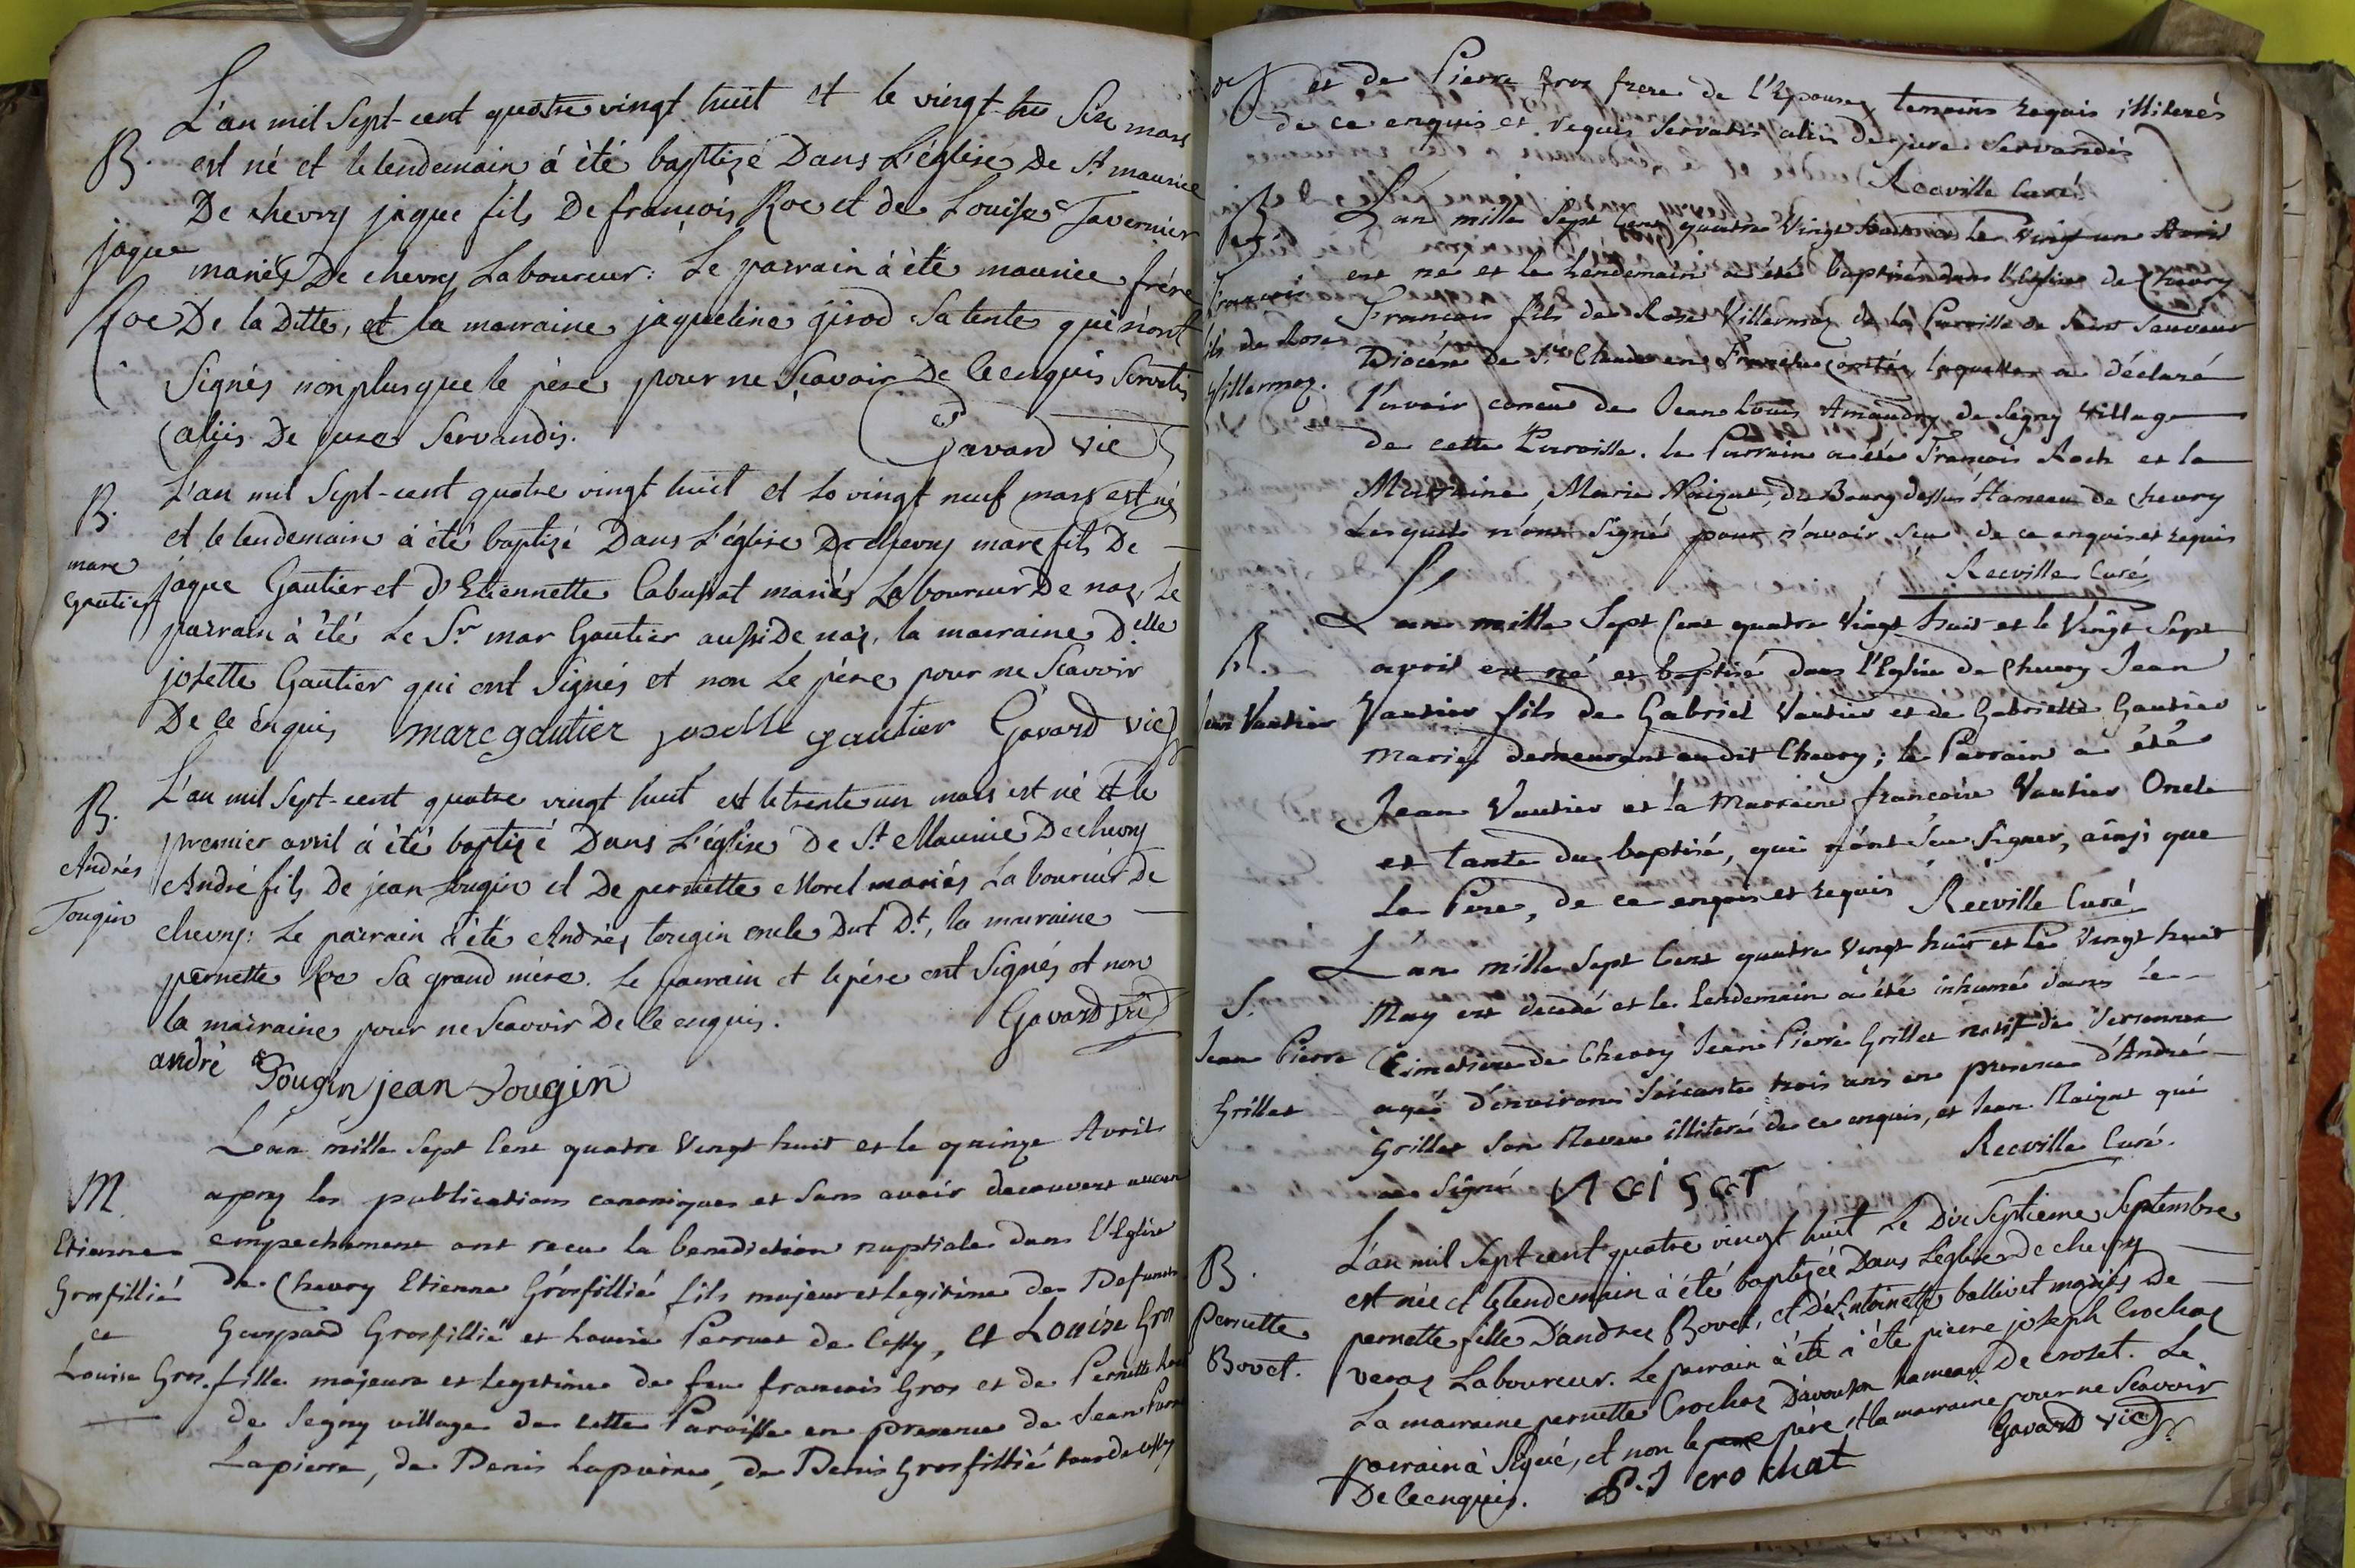 L'an mil Sept-cent quatre vingt huit et le vingt Six mars
B. est né et le lendemain à été baptizé Dans L'église De St maurice
De chevry jaque fils De françois Roc et de Louise Tavernier
jaque mariés De chevry Laboureur: Le parrain à été maurice frére
Roc De la Ditte, et la marraine jaqueline girod Sa tente qui n'ont
Signés non plus que le père pour ne Scavoir De ce enquis Servatis
aliis De jure Servandis. Gavard vic
B. L'an mil Sept-cent quatre vingt huit et le vingt neuf mars est né
et le lendemain à été baptizé Dans L'église De chevry marc fils De
marc
Gautier jaque Gautier et d'Etiennette mariés Laboureur De naz, Le
parrain à été Le Sr mar Gautier aussi De naz, la marraine Delle
josette Gautier qui ont Signés et non Le père pour ne Scavoir
De ce enquis marc gautier josette gautier Gavard vic
L'an mil Sept-cent quatre vingt huit et le trente un mars est né et le
B. premier avril à été baptizé Dans L'église De St Maurice De chevry
Andrés André fils De jean tougin et De pernette Morel mariés Laboureur De
Tougin chevry: Le parrain à été Andrés tougin oncle Dut Dt, la marraine
pernette Roc Sa grand mère. Le parrain et le père ont Signés et non
la marraine pour ne Scavoir De ce enquis. Gavard vic
andré Tougin jean Tougin
L'an mille Sept Cent quatre Vingt huit et le quinze Avril
M apres les publications canoniques et Sans avoir decouvert aucun
Etienne empechement ont recu la benediction nuptiale dans l'Eglise
Grosfillié de Chevry Etienne Grosfillié fils majeur et legitime de Defunts
et Gaspard Grosfillié et Louise Perruet de Cessy, et Louise Gros
Louise Gros. fille majeure et legitime de feu francois Gros et de Pernette
de Segny village de cette Paroisse en presence de Jean
Lapierre, de Denis Lapierre, de Denis Grosfillié tous de Cessy
et de Pierre Gros frere de l'Epouse, temoins requis illiterés
de ce enquis et requis Servatis aliis de jure Servandis
Recville Curé
B. L'an mille Sept Cent quatre Vingt huit et le vingt un Avril
est né et le Lendemain a été baptisé dans l'Eglise de Chevry
François Francois fils de Rose Villermoz de la Paroisse de Saint Sauveur
fils de Rose Diocése de St Claude en Franche comté, laquelle a déclaré
Villermoz. l'avoir concu de Jean Louis Amaudry de Segny Village
de cette Paroisse. le Parrain a été Francois Roch et la
Marraine, Marie Naizat, de Bourg dessus Hameau de Chevry
Lesquels n'ont Signé pour n'avoir Seu de ce enquis et requis
Recville Curé
L'an mille Sept Cent quatre Vingt huit et le Vingt Sept
B. avril est né et baptisé dans l'Eglise de Chevry Jean
Jean Vautier Vautier fils de Gabriel Vautier et de Gabrielle Gautier
mariés demeurant audit Chevry; le Parrain a été
Jean Vautier et la Marraine francoise Vautier Oncle
et tante du baptisé, qui n'ont Seu Signer, ainsi que
Le Pere, de ce enquis et requis Recville Curé
L'an mille Sept Cent quatre Vingt huit et le Vingt huit
S. May est decedé et le Lendemain a été inhumé dans le
Jean Pierre Cimetiere de Chevry Jean Pierre Grillet natif de Versonnex
Grillet agé d'environ Soixante trois ans en presence d'André
Grillet Son Neveu illiteré de ce enquis, et Jean Naizat qui
a Signé Naizat Recville Curé.
L'an mil Sept cent quatre vingt huit Le Dix Septieme Septembre
B. est née et le lendemain à été baptizée Dans L'église de chevry
Pernette pernette fille D'andrés Bovet, et D'Antoinette ballivet mariés De
Bovet. veraz Laboureur. Le parrain à été à été pierre joseph Crochat
La marraine pernette Crochat D'avouzon hameau De crozet. Le
parrain à Signé, et non le père et la marraine pour ne Scavoir
De ce enquis. P. J crochat Gavard vic